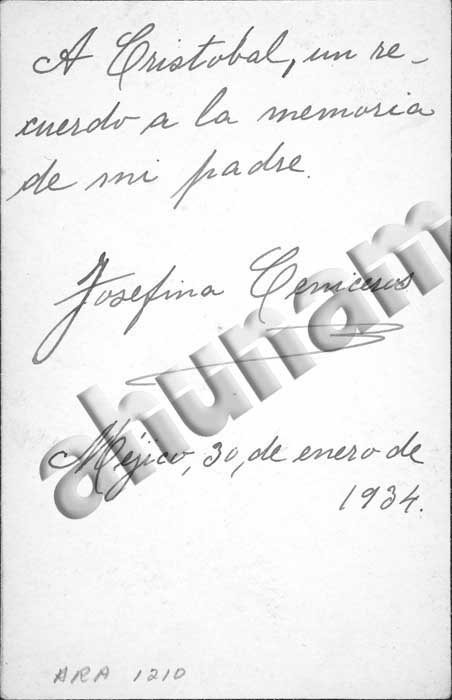 A Cristobal, un re-
cuerdo a la memoria
de mi padre.
Josefina Ceniceros
ahunam
Méjico, 30, de enero de
1934.
ARA 1210